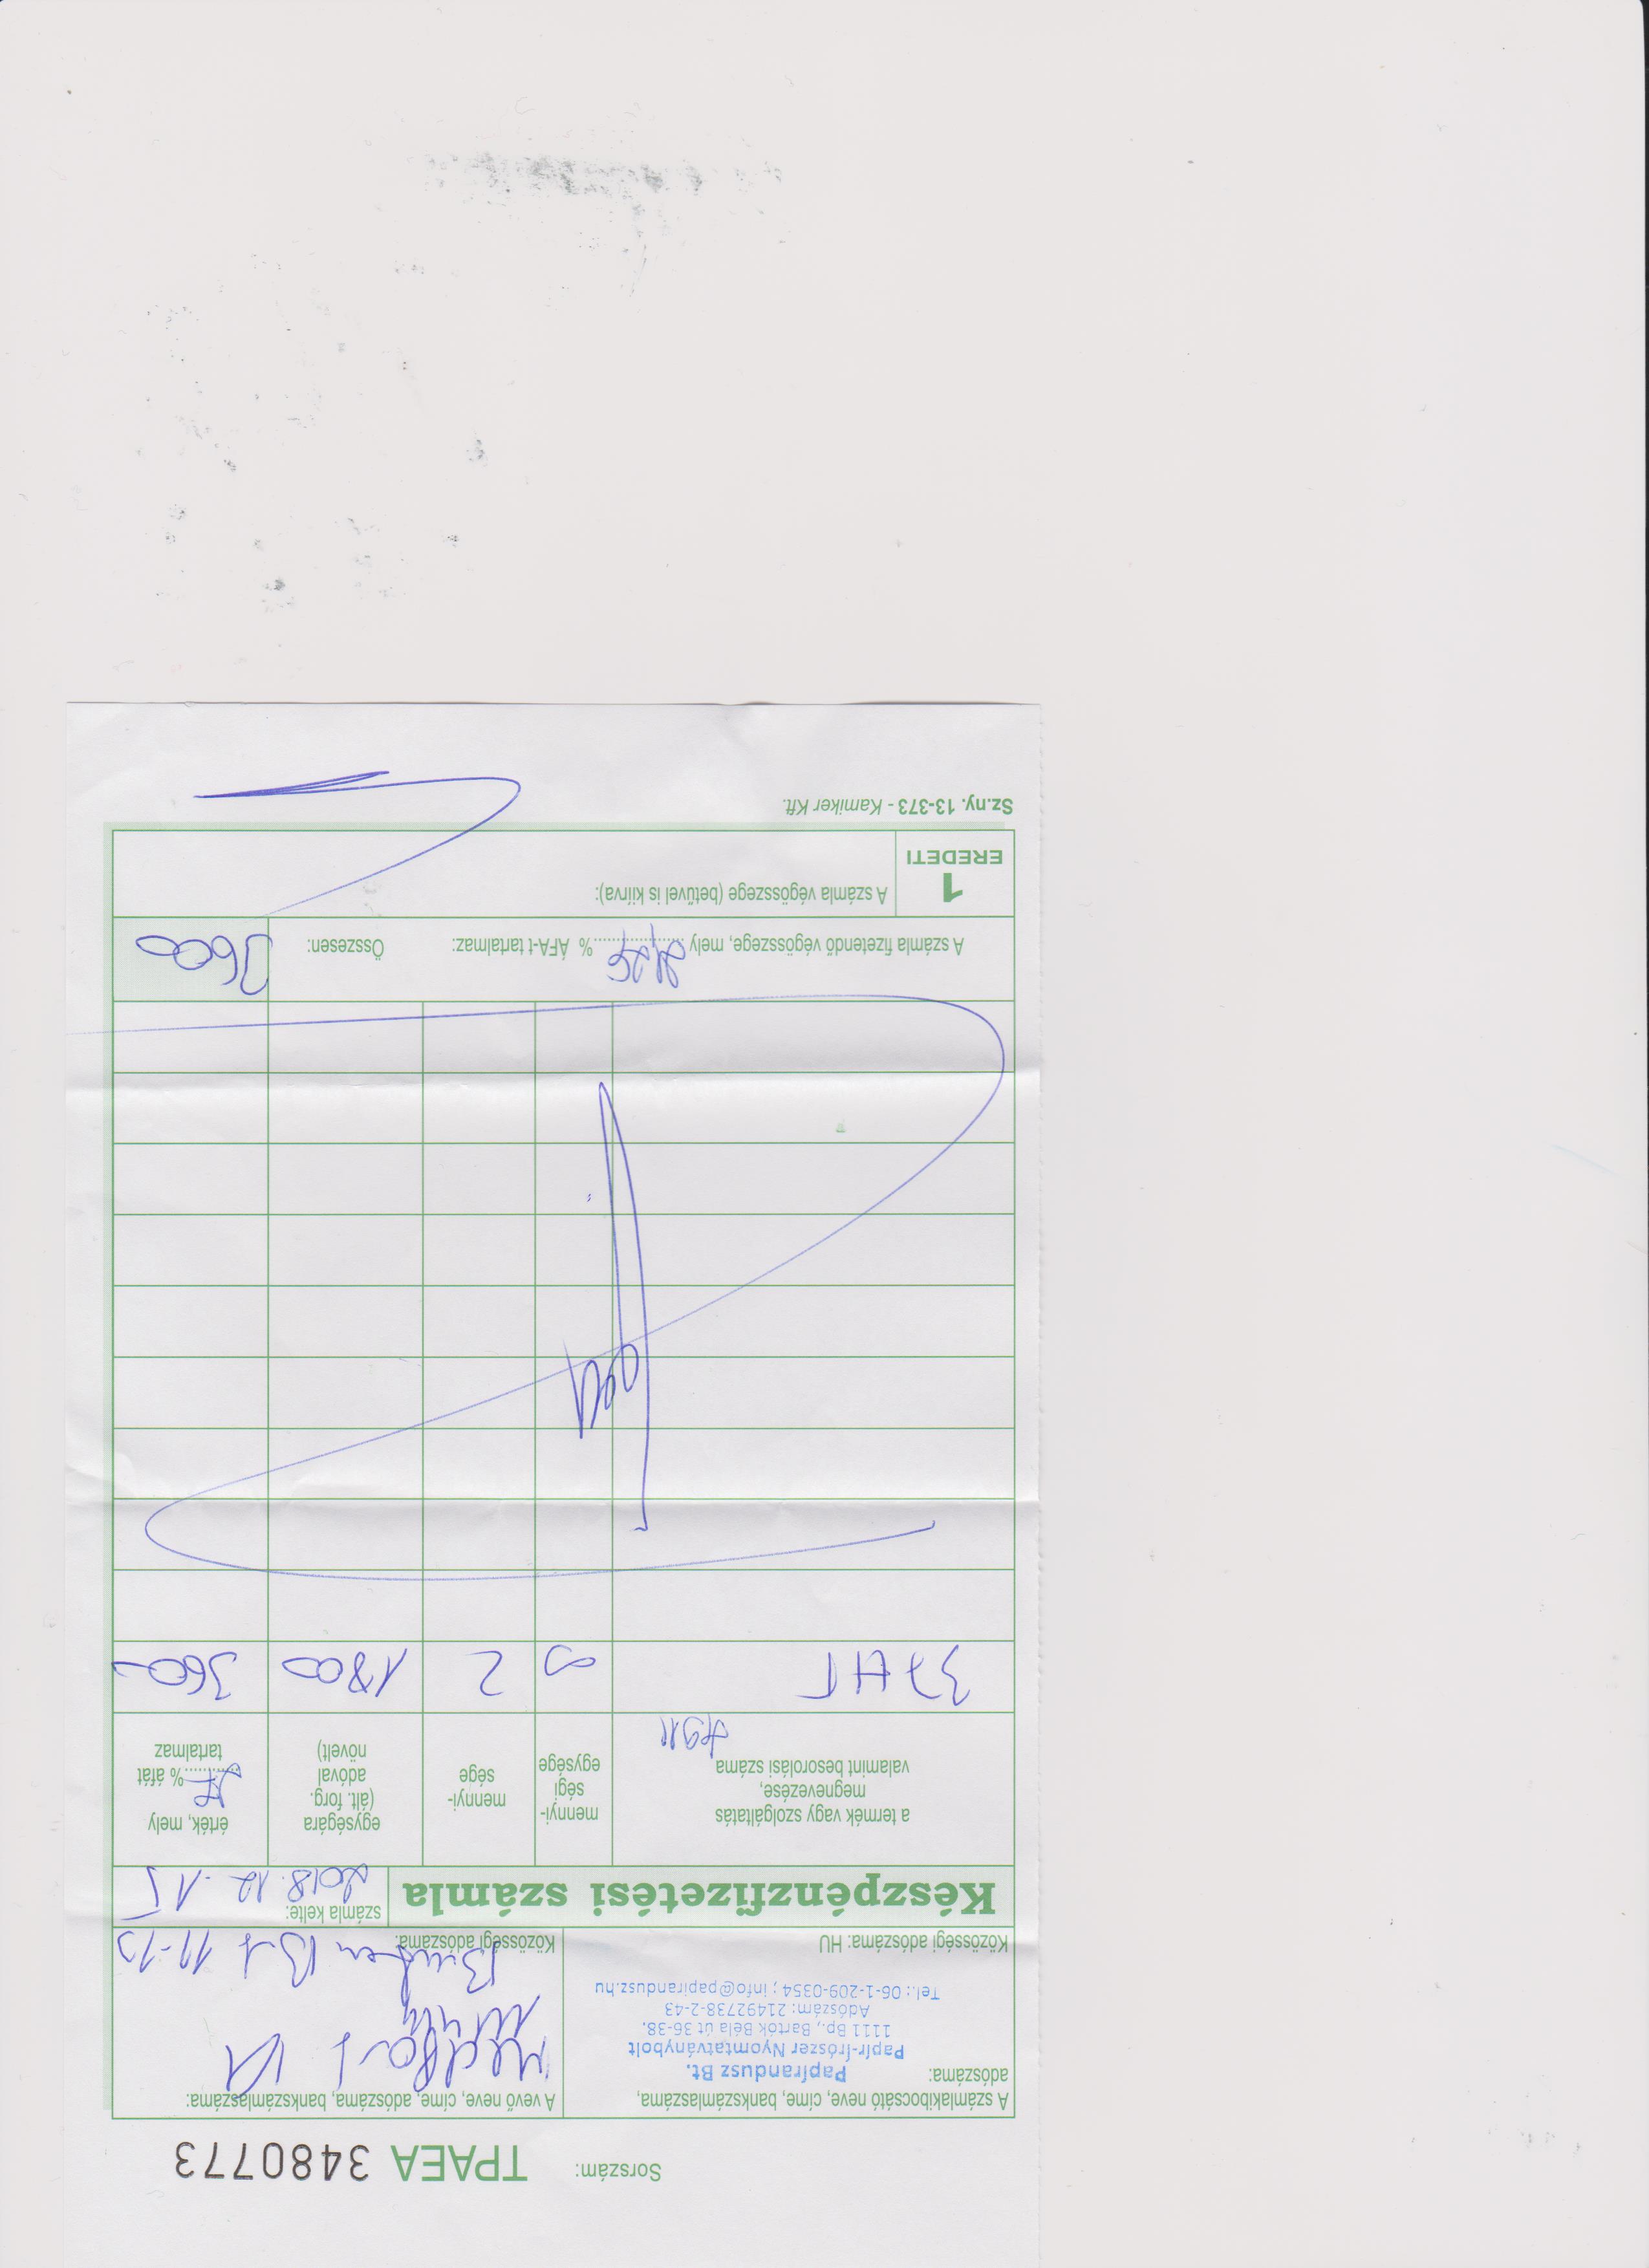 Sorszám: TPAEA 3480773
A számlakibocsátó neve, címe, bankszámlaszáma,
adószáma:
Papírandusz Bt.
Papír-Írószer Nyomtatványbolt
1111 Bp., Bartók Béla út 36-38.
Adószám: 21492738-2-43
Tel.: 06-1-209-0354 ; info@papirandusz.hu
Közösségi adószáma: HU
A vevő neve, címe, adószáma, bankszámlaszáma:
Közösségi adószáma:
11-13
Készpénzfizetési számla
számla kelte:
2018.12.15
a termék vagy szolgáltatás
megnevezése,
valamint besorolási száma
mennyi-
ségi
egysége
mennyi-
sége
egységára
(ált. forg.
adóval
növelt)
érték, mely
27 % áfát
tartalmaz
2 1800 3600
A számla fizetendő végösszege, mely % ÁFA-t tartalmaz: Összesen: 3600
1
EREDETI
A számla végösszege (betűvel is kiírva):
Sz.ny. 13-373 - Kamiker Kft.